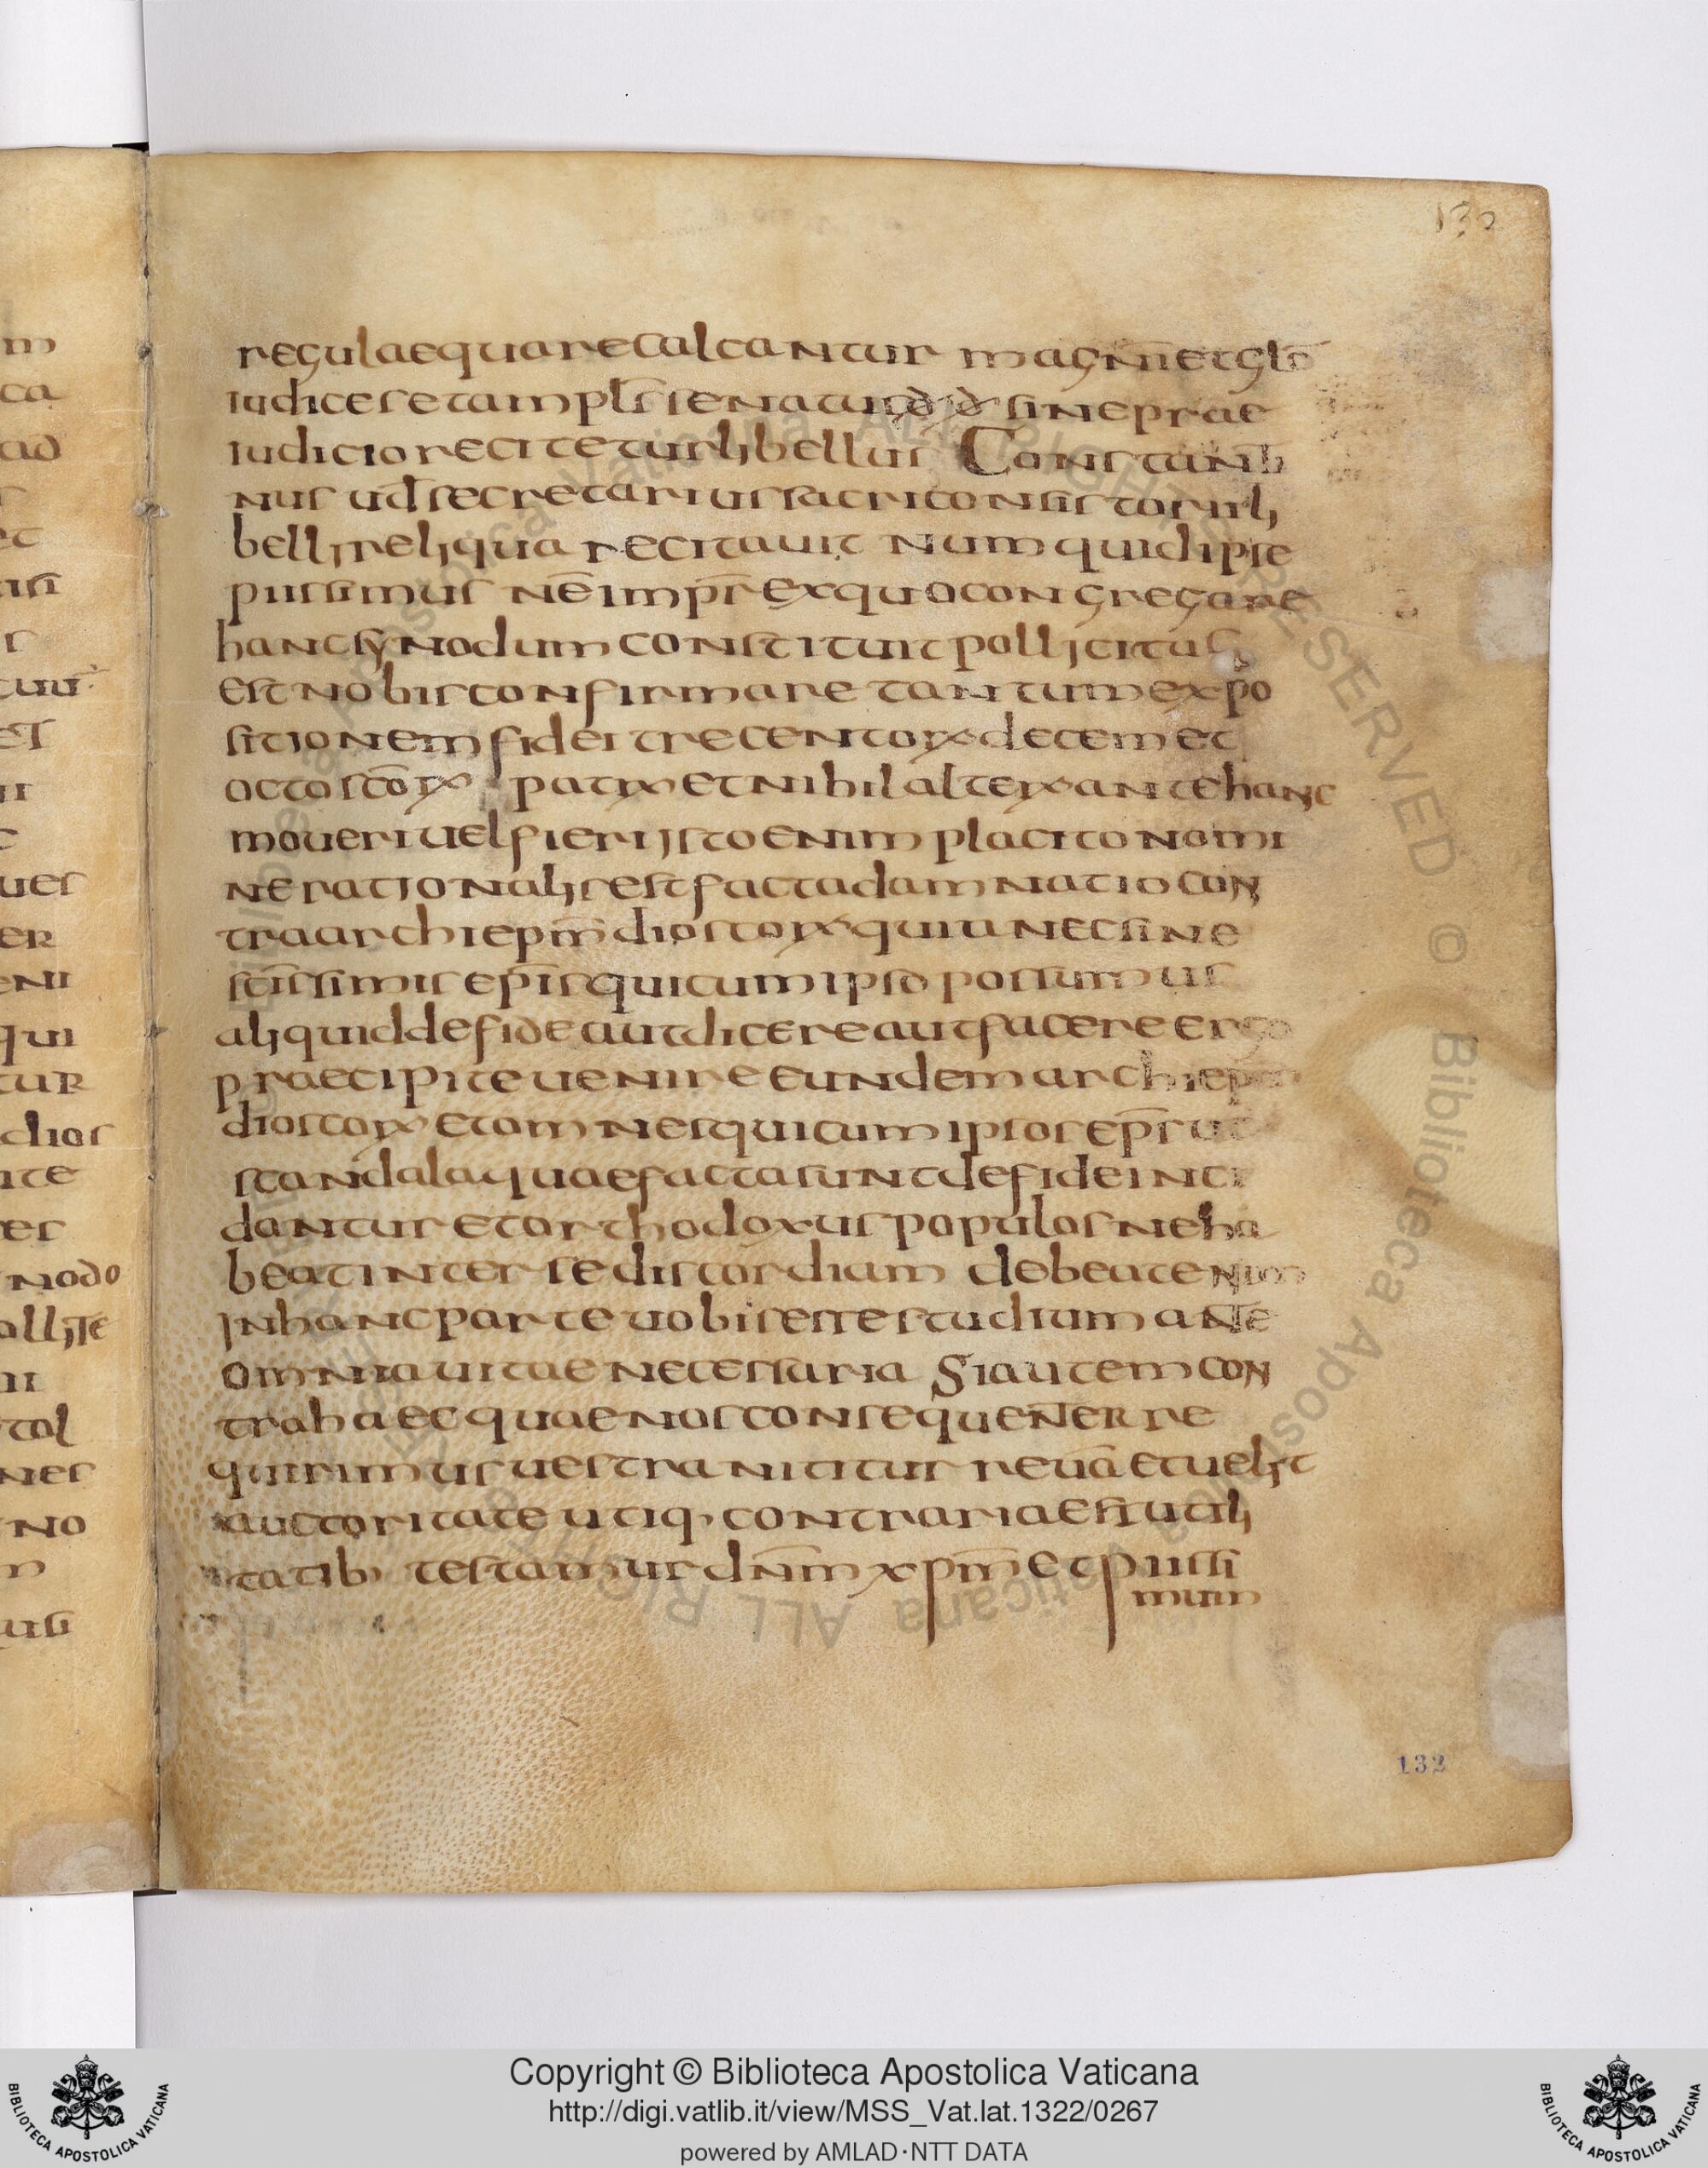 132
regulae quare calcantur magn̄ et glō
iudices et ampls̄ senatus d̄ d̄ sine prae
iudicio recitetur libellus Constanti
nus ud̄ secretarius sacri consistorii li
belli reliqua recitavit Numquid ipse
piissimus nē impr̄ ex quo congregare
hanc synodum constituit pollicitus
est nobis confirmare tantum expo
sitionem fidei trecentorum decem et
octo scōrum patrum et nihil alterum ante hanc
moveri vel fieri isto enim placito nomi
ne rationalis est facta damnatio con
tra archiepm̄ dioscorum quia nec sine
scīssimis epīs qui cum ipso possumus
aliquid de fide aut dicere aut facere ergo
praecipite venire eundem archiepm̄
dioscorum et omnes qui cum ipso s epr̄ ut
scandala quae facta sunt de fide inci
dantur et orthodoxus populos ne ha
beat inter se discordiam debeate nim
in hanc parte vobis esse studium ante
omnia vitae necessaria Si autem con
tra haec quae nos consequenter re
quirimus vestra nititur revā et velit
auctoritate utiq· contraria ess utili
tatib· testamur dn̄m xpm̄ et piissi
mum
132
m
ca
ad
r
et
r
ii
c
ues
er
eni
qui
tur
dios
ite
er
nodo
ii
tol
nes
no
m
Copyright © Biblioteca Apostolica Vaticana
http://digi.vatlib.it/view/MSS_Vat.lat.1322/0267
powered by AMLAD·NTT DATA
BIBLIOTECA APOSTOLICA VATICANA
BIBLIOTECA APOSTOLICA VATICANA
Biblioteca Apostolica Vaticana ALL RIGHTS RESERVED © Biblioteca Apostolica Vaticana ALL RIGHTS RESERVED ©